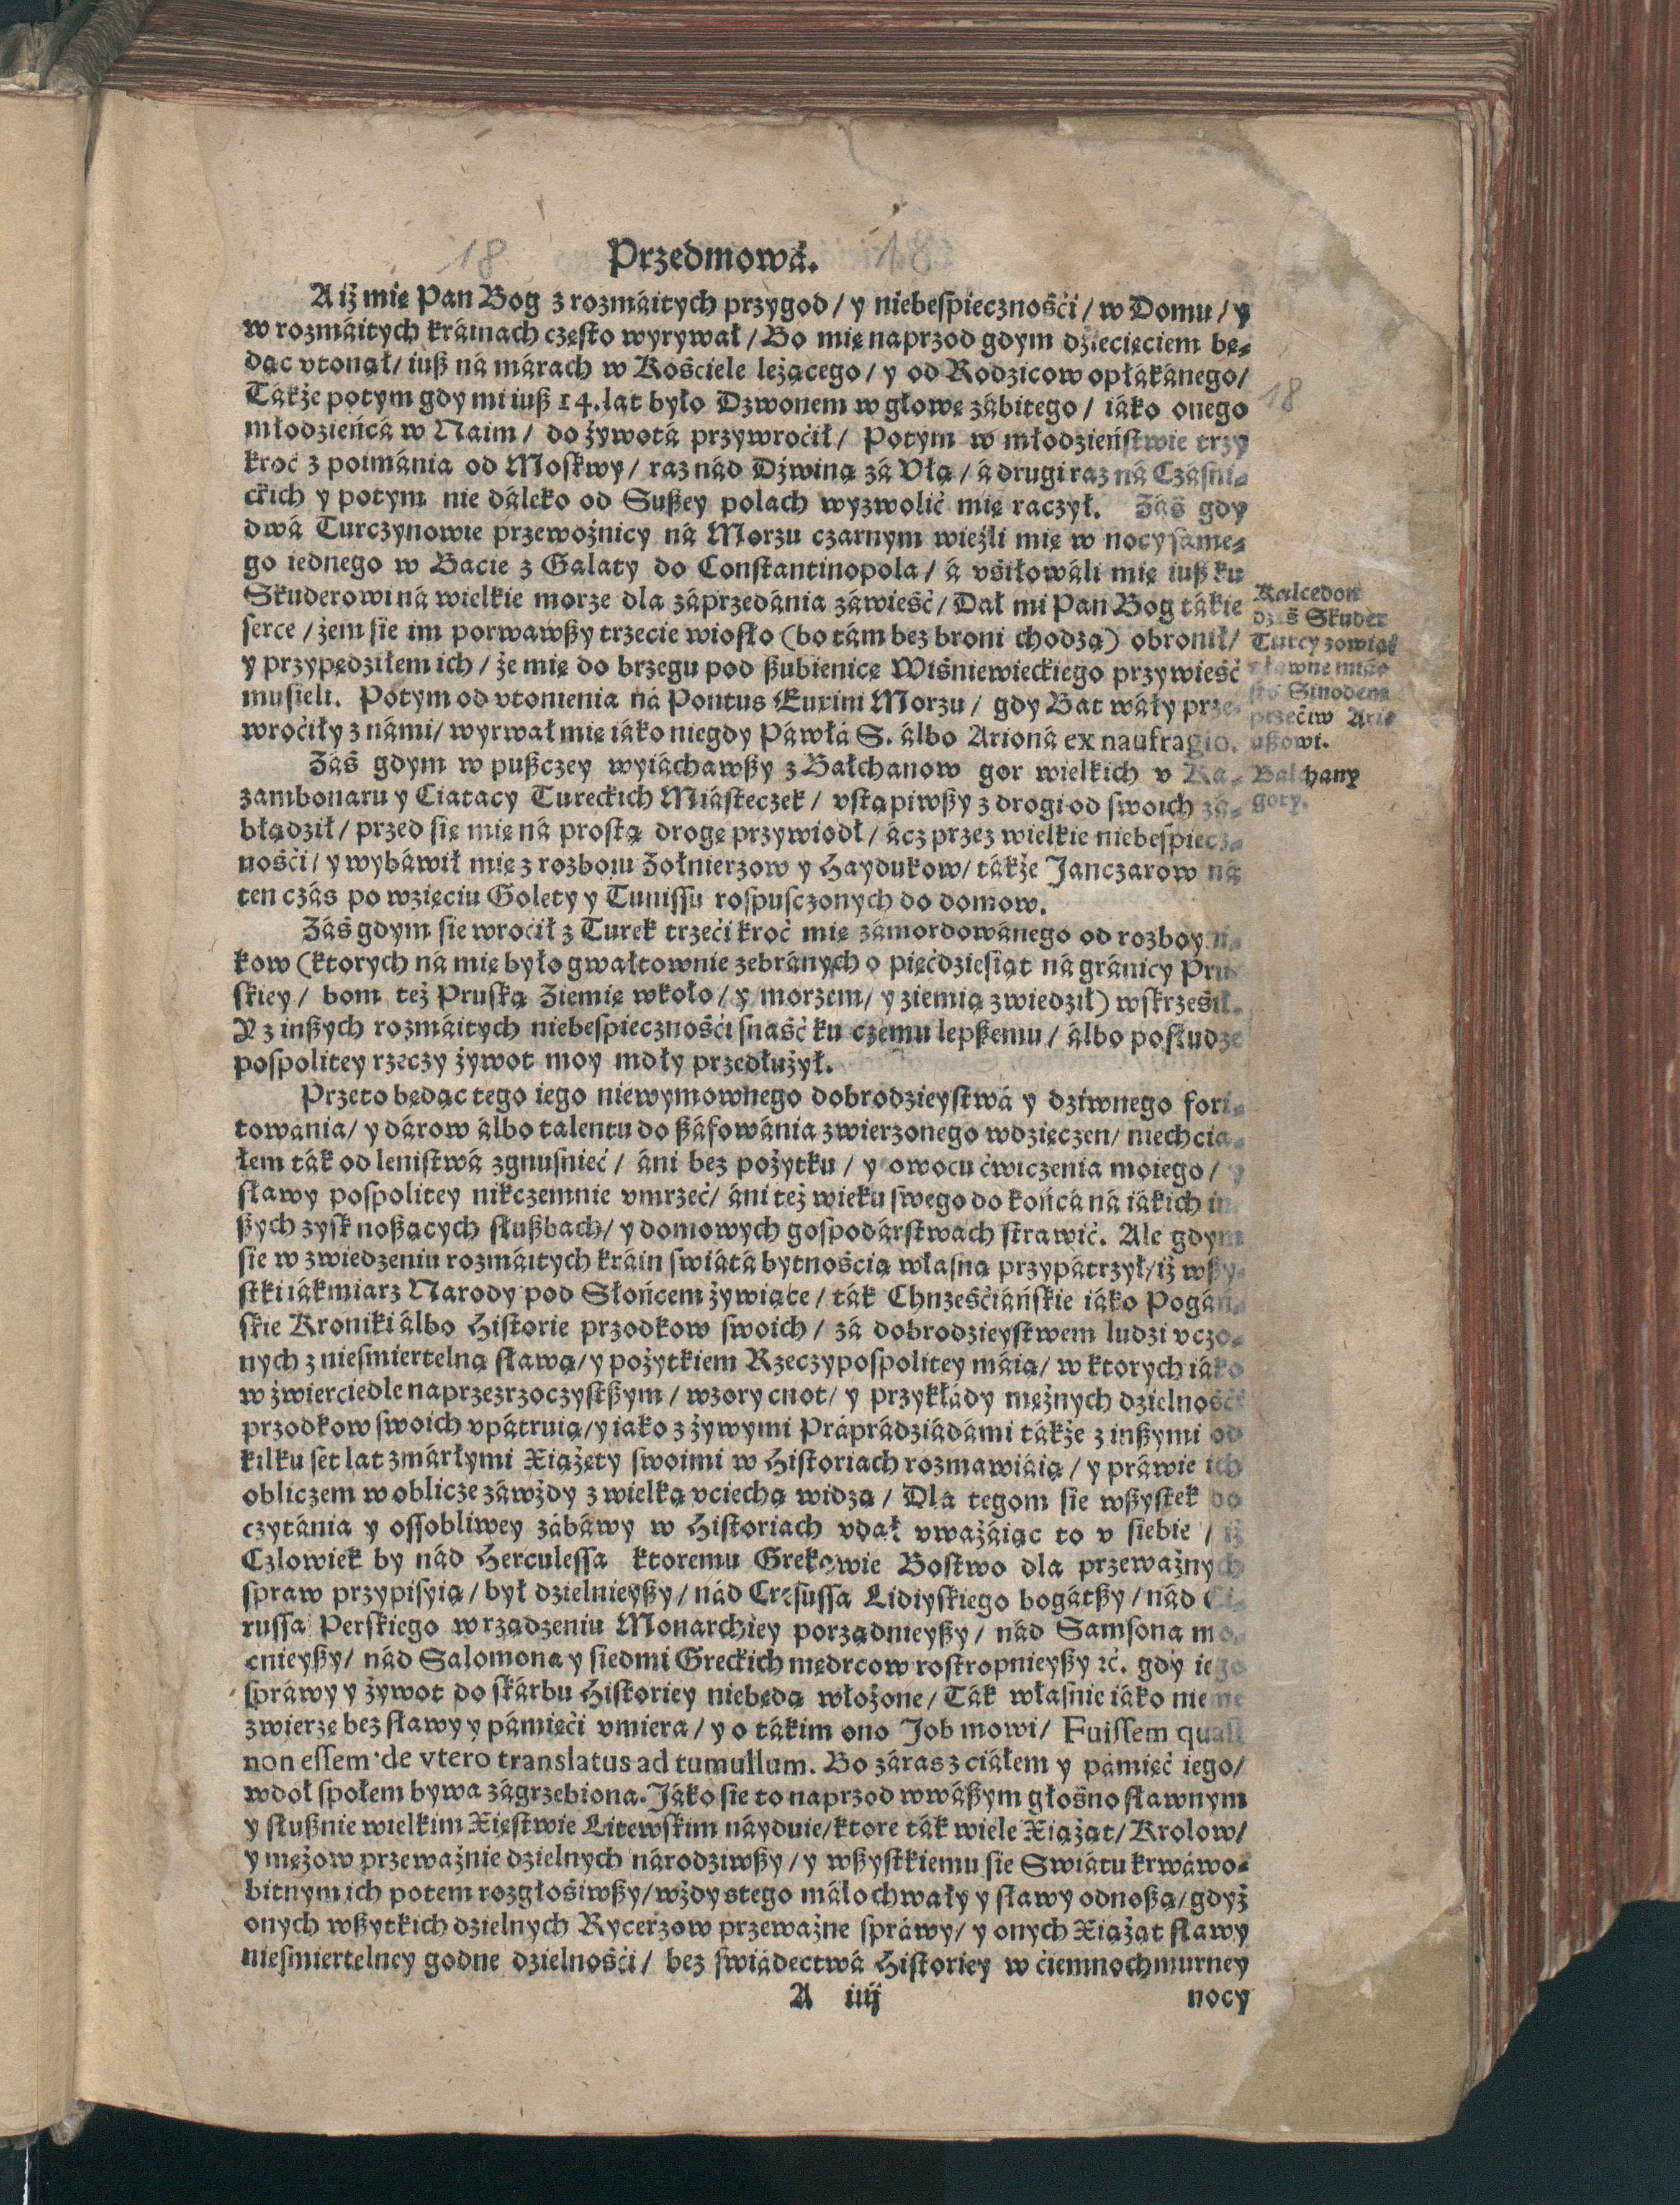 18 Przedmowá. 18
A iż mię Pan Bog z rozmáitych przygod / y niebespiecznośći / w Domu / y
w rozmáitych kráinach często wyrywał / Bo mię naprzod gdym dziecięciem bę⸗
dąc vtonął / iuß ná márach w Kośćiele leżącego / y od Rodzicow opłákánego /
Tákże potym gdy mi iuß 14. lat było Dzwonem w głowę zábitego / iáko onego
młodzieńcá w Naim / do żywotá przywroćił / Potym w młodzieństwie trzy
kroć z poimánia od Moskwy / raz nád Dźwiną zá Vłą / á drugi raz ná Czásni⸗
ckich y potym nie dáleko od Sußey polach wyzwolić mię raczył. Záś gdy
dwá Turczynowie przewoźnicy ná Morzu czarnym wieźli mię w nocy sáme⸗
go iednego w Bacie z Galaty do Constantinopola / á vśiłowáli mię iuß ku
Skuderowi ná wielkie morze dla záprzedánia záwieść / Dał mi Pan Bog tákie
serce / żem sie im porwawßy trzecie wiosło (bo tám bez broni chodzą) obronił /
y przypędziłem ich / że mię do brzegu pod ßubienicę Wiśniewieckiego przywieść
musieli. Potym od vtonienia ná Pontus Euxini Morzu / gdy Bat wáły prze⸗
wroćiły z námi / wyrwał mię iáko niegdy Páwłá S. álbo Arioná ex naufragio.
Kalcedon
dziś Skuder
Turcy zowią
sławne miá⸗
sto Sinodem
przećiw Ari⸗
ußowi.
Záś gdym w pußczey wyiáchawßy z Bałchanow gor wielkich v Ka⸗
zambonaru y Ciatacy Tureckich Miásteczek / vstąpiwßy z drogi od swoich zá⸗
błądził / przed się mię ná prostą drogę przywiodł / ácz przez wielkie niebespiecz⸗
nośći / y wybáwił mię z rozboiu Żołnierzow y Haydukow / tákże Janczarow ná
ten czás po wzięciu Golety y Tunissu rospusczonych do domow.
Balchany
gory.
Záś gdym sie wroćił z Turek trzeći kroć mię zámordowánego od rozboyni⸗
kow (ktorych ná mię było gwałtownie zebránych o pięćdziesiąt ná gránicy Pru⸗
skiey / bom też Pruską Ziemię wkoło / y morzem / y ziemią zwiedził) wskrześił.
Y z inßych rozmáitych niebespiecznośći snaść ku czemu lepßemu / álbo posłudze
pospolitey rzeczy żywot moy mdły przedłużył.
Przeto będąc tego iego niewymownego dobrodzieystwá y dziwnego fori⸗
towánia / y dárow álbo talentu do ßáfowánia zwierzonego wdzięczen / niechcia⸗
łem ták od lenistwá zgnusnieć / áni bez pożytku / y owocu ćwiczenia moiego / y
sławy pospolitey nikczemnie vmrzeć / áni też wieku swego do końcá ná iákich in⸗
ßych zysk noßących słußbach / y domowych gospodárstwach strawić. Ale gdym
sie w zwiedzeniu rozmáitych kráin swiátá bytnośćią własną przypátrzył / iż wßy⸗
stki iákmiarz Narody pod Słońcem żywiące / ták Chrześćiáńskie iáko Pogáń⸗
skie Kroniki álbo Historie przodkow swoich / zá dobrodzieystwem ludzi vczo⸗
nych z niesmiertelną sławą / y pożytkiem Rzeczypospolitey máią / w ktorych iáko
w zwierciedle naprzezrzoczystßym / wzory cnot / y przykłády mężnych dzielnośći
przodkow swoich vpátruią / y iako z żywymi Práprádziádámi tákże z inßymi od
kilku set lat zmárłymi Xiążęty swoimi w Historiach rozmawiáią / y práwie ich
obliczem w oblicze záwżdy z wielką vciechą widzą / Dla tegom sie wßystek do
czytánia y ossobliwey zábáwy w Historiach vdał vważáiąc to v siebie / iż
Człowiek by nád Herculessa ktoremu Grekowie Bostwo dla przeważnych
spraw przypisyią / był dzielnieyßy / nád Cresussa Lidiyskiego bogátßy / nád Ci⸗
russa Perskiego w rządzeniu Monarchiey porządnieyßy / nád Samsona mo⸗
cnieyßy / nád Salomona y siedmi Greckich mędrcow rostropnieyßy ꝛć. gdy iego
spráwy y żywot do skárbu Historiey niebędą włożone / Ták własnie iáko nieme
zwierzę bez sławy y pámięći vmiera / y o tákim ono Job mowi / Fuissem quasi
non essem de vtero translatus ad tumullum. Bo záras z ciáłem y pámięć iego /
w doł społem bywa zágrzebiona. Jáko sie to naprzod w wáßym głośno sławnym
y słußnie wielkim Xięstwie Litewskim náyduie / ktore ták wiele Xiążąt / Krolow /
y mężow przeważnie dzielnych národziwßy / y wßystkiemu sie Swiátu krwáwo⸗
bitnym ich potem rozgłośiwßy / wżdy stego máło chwały y sławy odnoßą / gdyż
onych wßytkich dzielnych Rycerzow przeważne spráwy / y onych Xiążąt sławy
niesmiertelney godne dzielnośći / bez swiádectwá Historiey w ćiemnochmurney
A iiij nocy
18